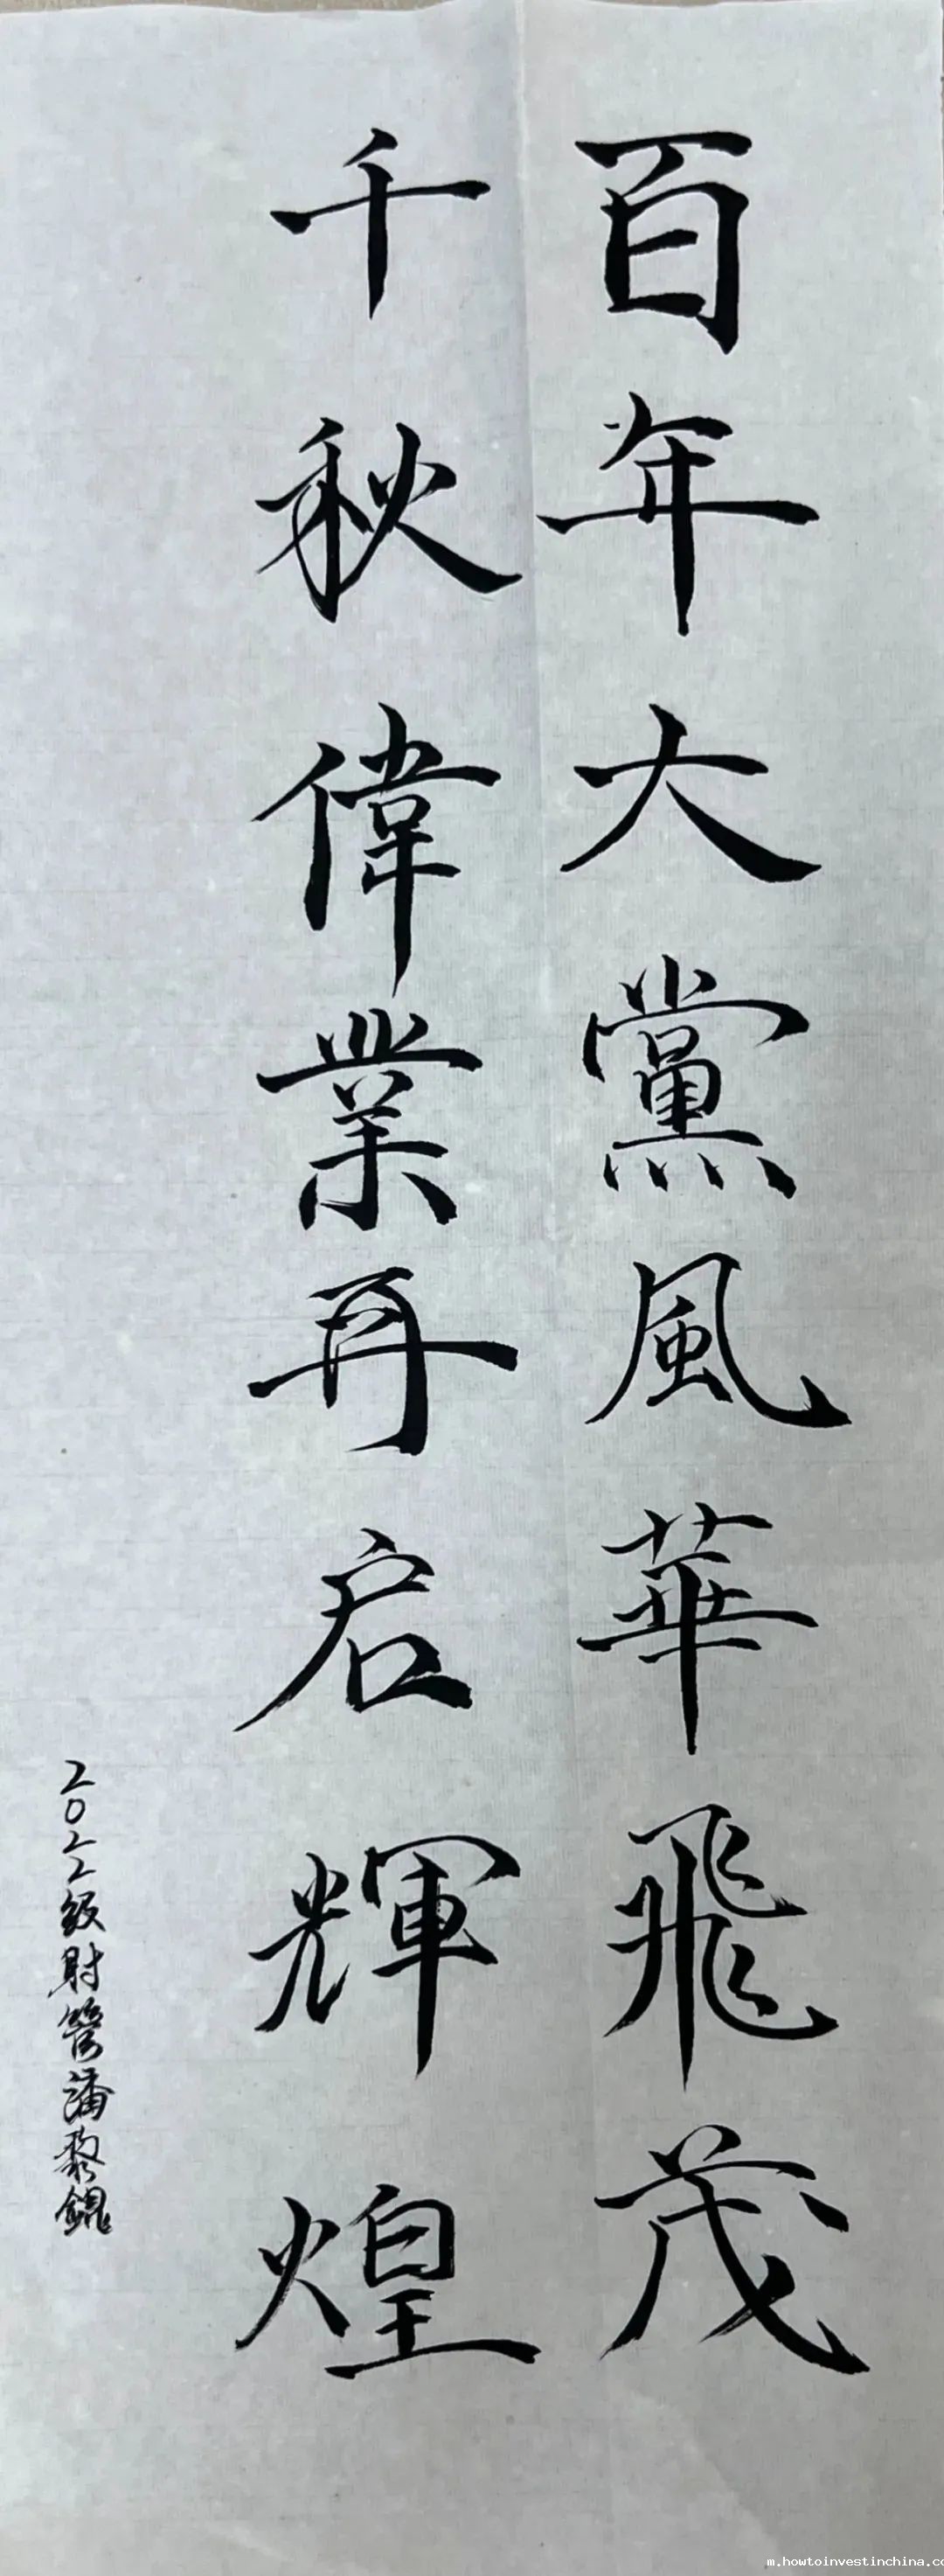 百年大黨風華飛茂
千秋偉業再启輝煌
2022级財管潘黎錕
m.howtoinvestinchina.co